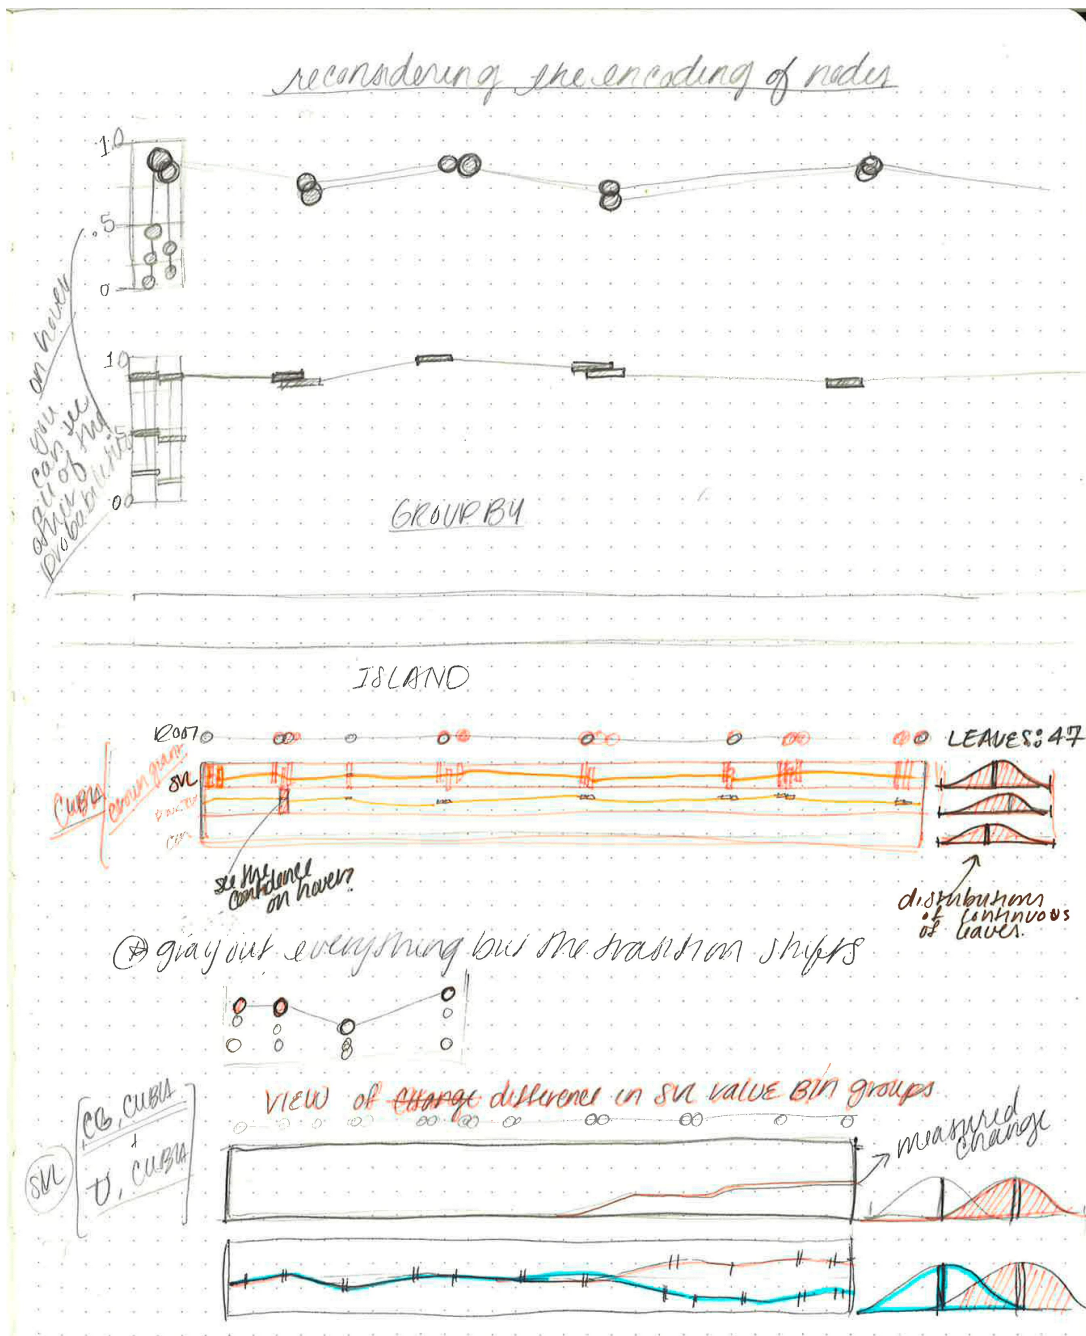 reconsidering the encoding of nodes
1.0
.5
0
on hover
you
can see
all of the
other
probabilities
1.0
.5
00
GROUP BY
ISLAND
ROOT
LEAVES: 47
CUBA/
crown giant
SVL
see the
confidence
on hover?
distributions
of continuous
of leaves.
gray out everything but the transition shifts
VIEW of change difference in SVL value Bin groups
CG, CUBA
+
T, CUBA
SVL
measured
change